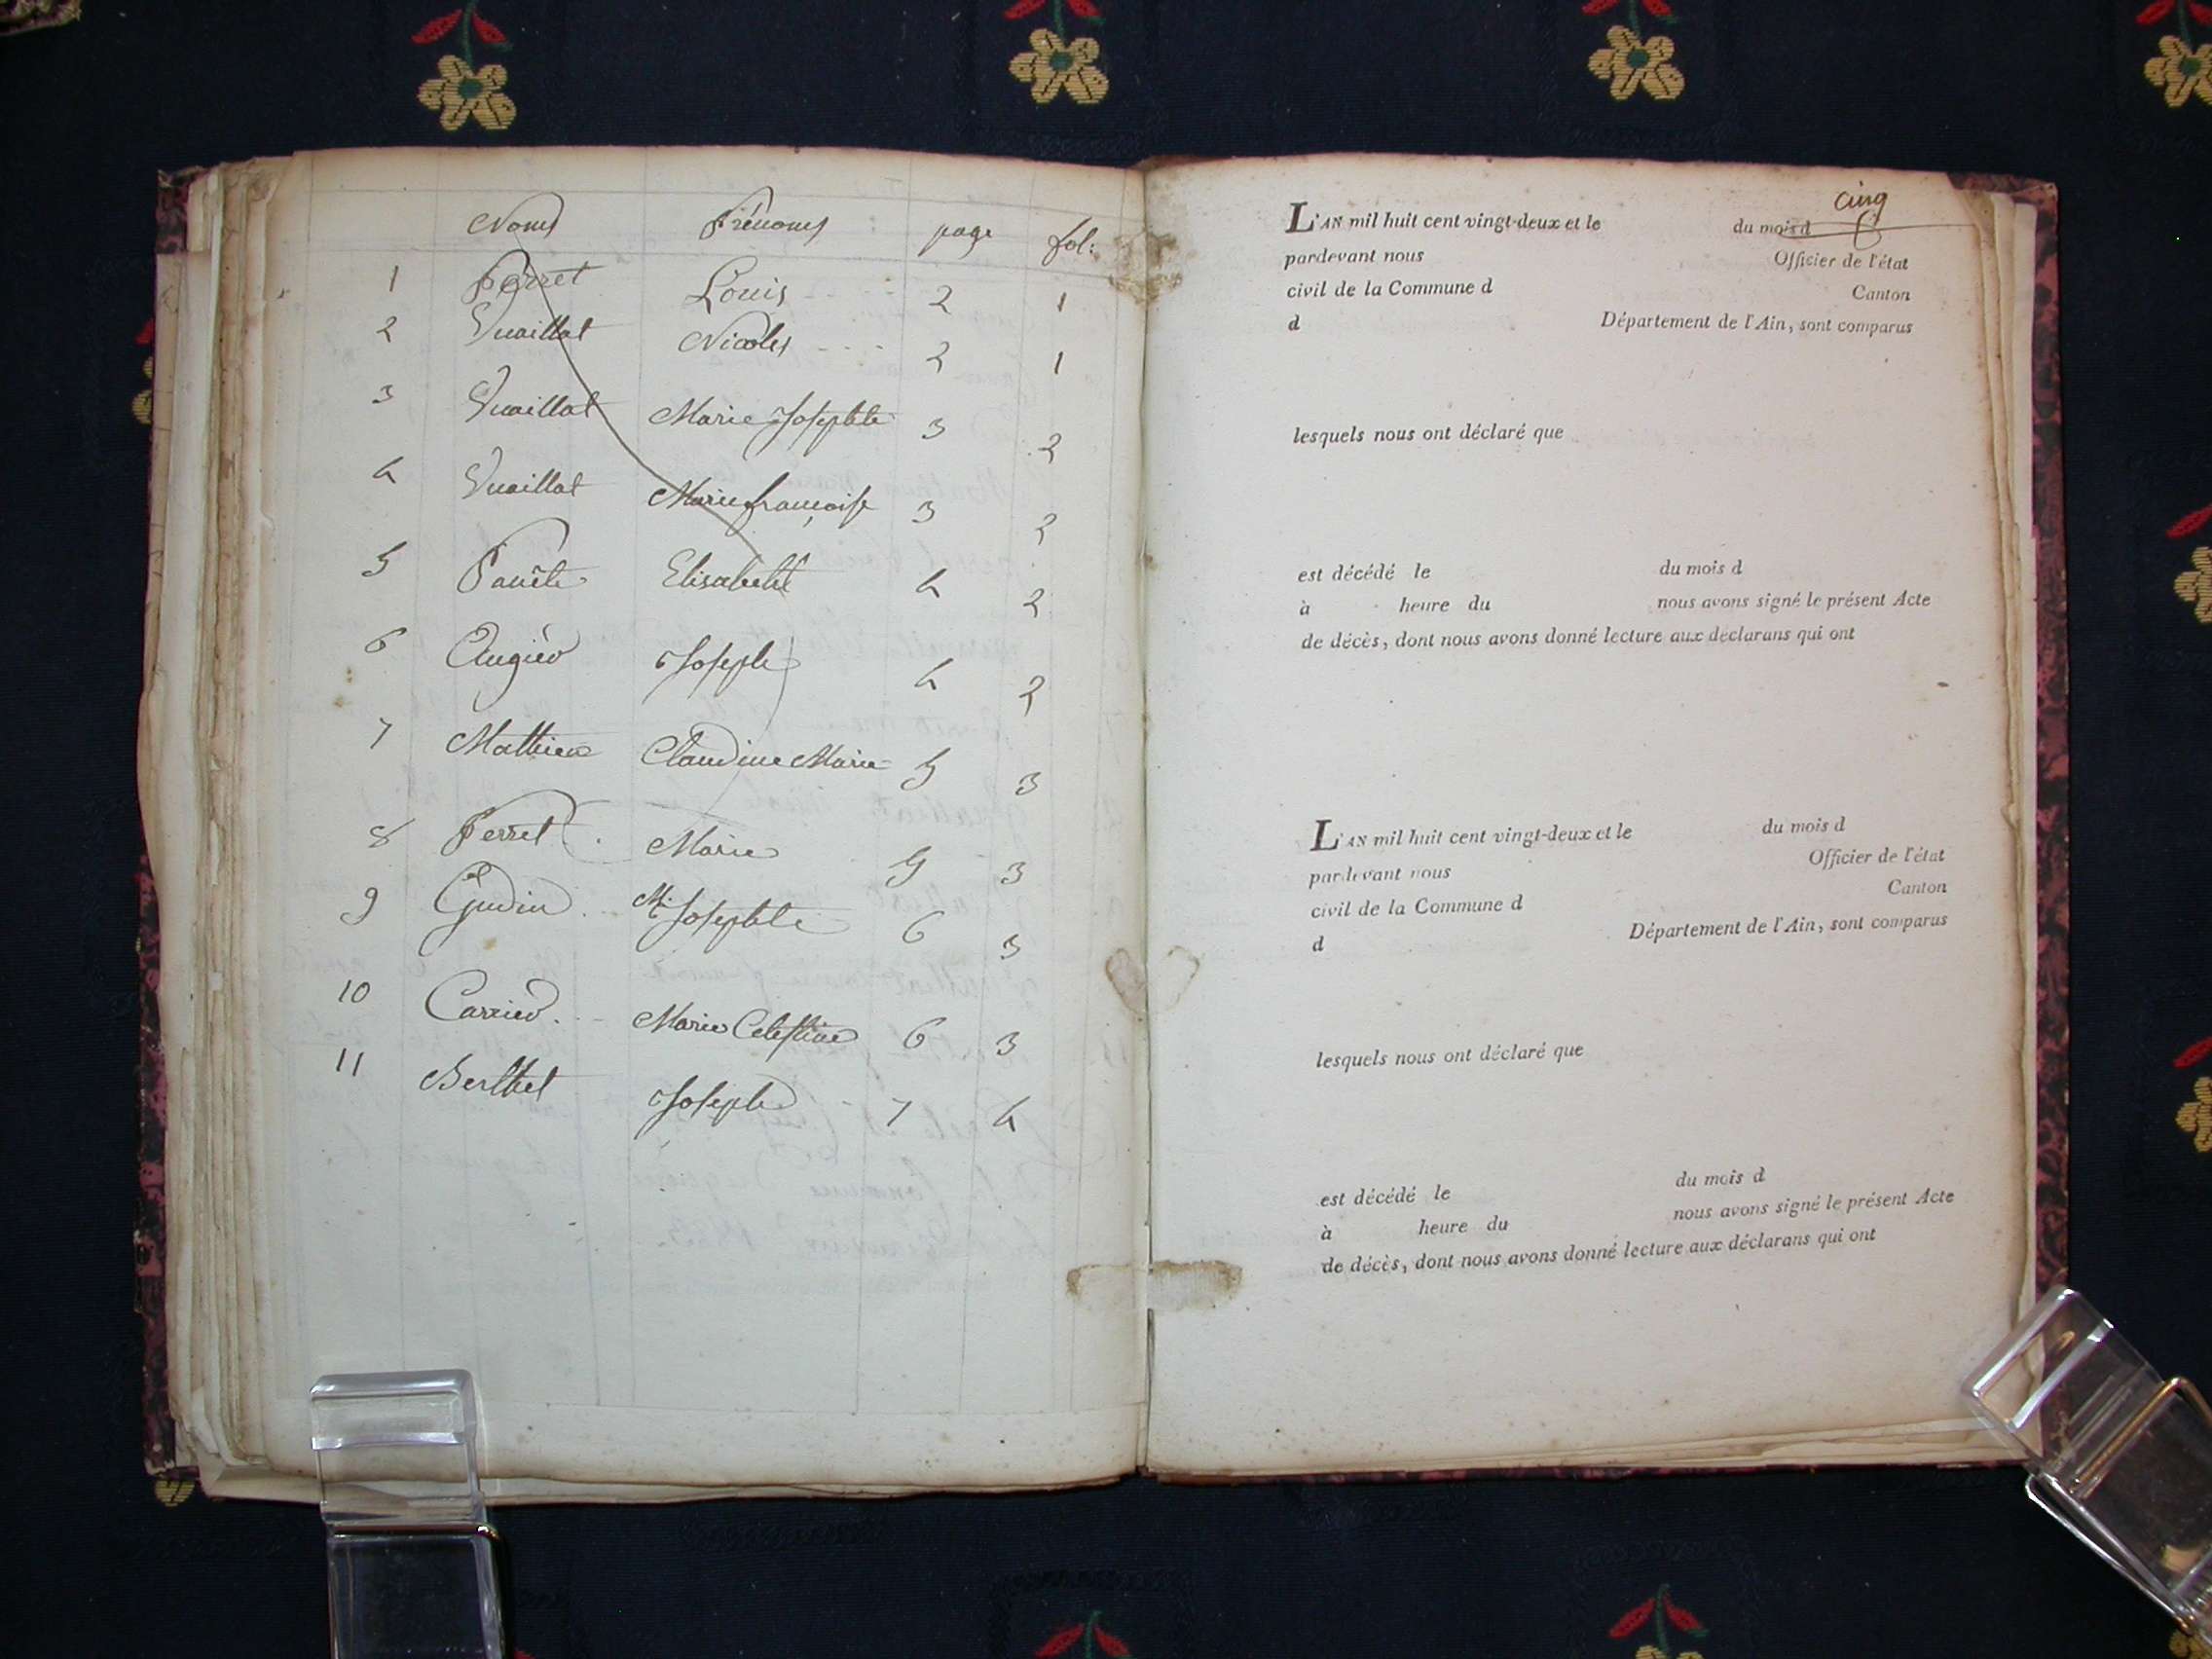 Noms Prénoms page fol:
1 Perret Louis 2 1
2 Vuaillat Nicolas 2 1
3 Vuaillat Marie Josephte 3 2
4 Vuaillat Marie françoise 3 2
5 Elisabeth 4 2
6 Augier Joseph 4 2
7 Mathieu Claudine Marie 5 3
8 Perret Marie 5 3
9 Gudin M. Josephte 6 3
10 Carrier Marie Celestine 6 3
11 Berthet Joseph 7 4
cinq
L'AN mil huit cent vingt-deux et le du mois d
pardevant nous Officier de l'état
civil de la Commune d Canton
d Département de l'Ain, sont comparus
lesquels nous ont déclaré que
est décédé le du mois d
à heure du nous avons signé le présent Acte
de décès, dont nous avons donné lecture aux déclarans qui ont
L'AN mil huit cent vingt-deux et le du mois d
pardevant nous Officier de l'état
civil de la Commune d Canton
d Département de l'Ain, sont comparus
lesquels nous ont déclaré que
est décédé le du mois d
à heure du nous avons signé le présent Acte
de décès, dont nous avons donné lecture aux déclarans qui ont